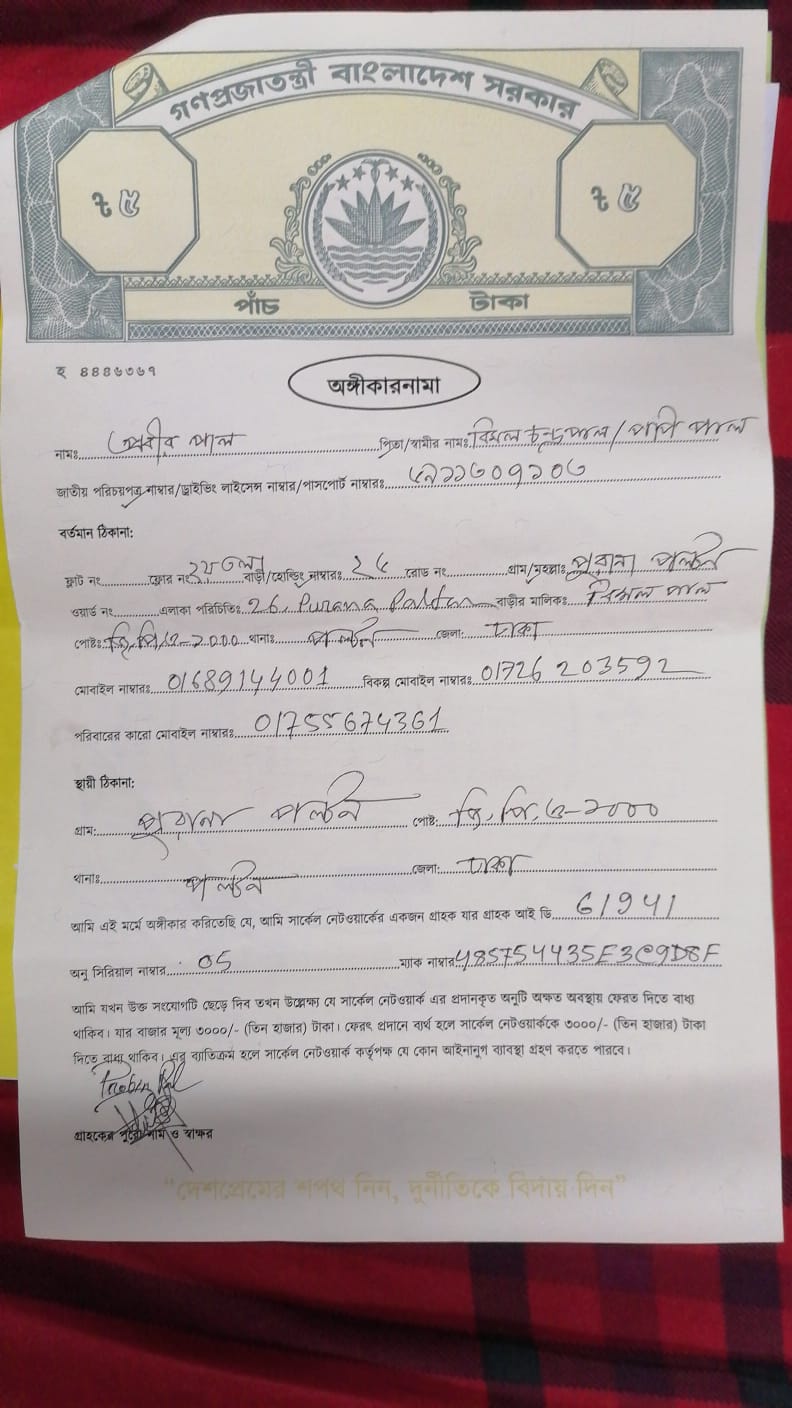 গণপ্রজাতন্ত্রী বাংলাদেশ সরকার
৳ ৫ ৳ ৫
পাঁচ টাকা
হ ৪৪৪৬৩৬৭
অঙ্গীকারনামা
নামঃ প্রবীর পাল পিতা/স্বামীর নামঃ বিমল চন্দ্র পাল / পপি পাল
জাতীয় পরিচয়পত্র নাম্বার/ড্রাইভিং লাইসেন্স নাম্বার/পাসপোর্ট নাম্বারঃ
বর্তমান ঠিকানা:
ফ্লাট নং ফ্লোর নং ২য় তলা বাড়ী/হোল্ডিং নাম্বারঃ ২৬ রোড নং গ্রাম/মহল্লাঃ পুরানা পল্টন
ওয়ার্ড নং এলাকা পরিচিতিঃ 26, Purana Paltan বাড়ীর মালিকঃ বিমল পাল
পোষ্টঃ জি,পি,ও-১০০০ থানাঃ পল্টন জেলা: ঢাকা
মোবাইল নাম্বারঃ 01689144001 বিকল্প মোবাইল নাম্বারঃ 01726 203592
পরিবারের কারো মোবাইল নাম্বারঃ 01755674361
স্থায়ী ঠিকানা:
গ্রাম: পুরানা পল্টন পোষ্ট: জি, পি, ও-১০০০
থানাঃ পল্টন জেলা: ঢাকা
আমি এই মর্মে অঙ্গীকার করিতেছি যে, আমি সার্কেল নেটওয়ার্কের একজন গ্রাহক যার গ্রাহক আই ডি 61941
অনু সিরিয়াল নাম্বার 05 ম্যাক নাম্বার 485754435E3C9D8F
আমি যখন উক্ত সংযোগটি ছেড়ে দিব তখন উল্লেক্ষ্য যে সার্কেল নেটওয়ার্ক এর প্রদানকৃত অনুটি অক্ষত অবস্থায় ফেরত দিতে বাধ্য
থাকিব। যার বাজার মূল্য ৩০০০/- (তিন হাজার) টাকা। ফেরৎ প্রদানে ব্যর্থ হলে সার্কেল নেটওয়ার্ককে ৩০০০/- (তিন হাজার) টাকা
দিতে বাধ্য থাকিব। এর ব্যতিক্রম হলে সার্কেল নেটওয়ার্ক কর্তৃপক্ষ যে কোন আইনানুগ ব্যাবস্থা গ্রহণ করতে পারবে।
Probir Pal
গ্রাহকের পুরো নাম ও স্বাক্ষর
“দেশপ্রেমের শপথ নিন, দুর্নীতিকে বিদায় দিন”